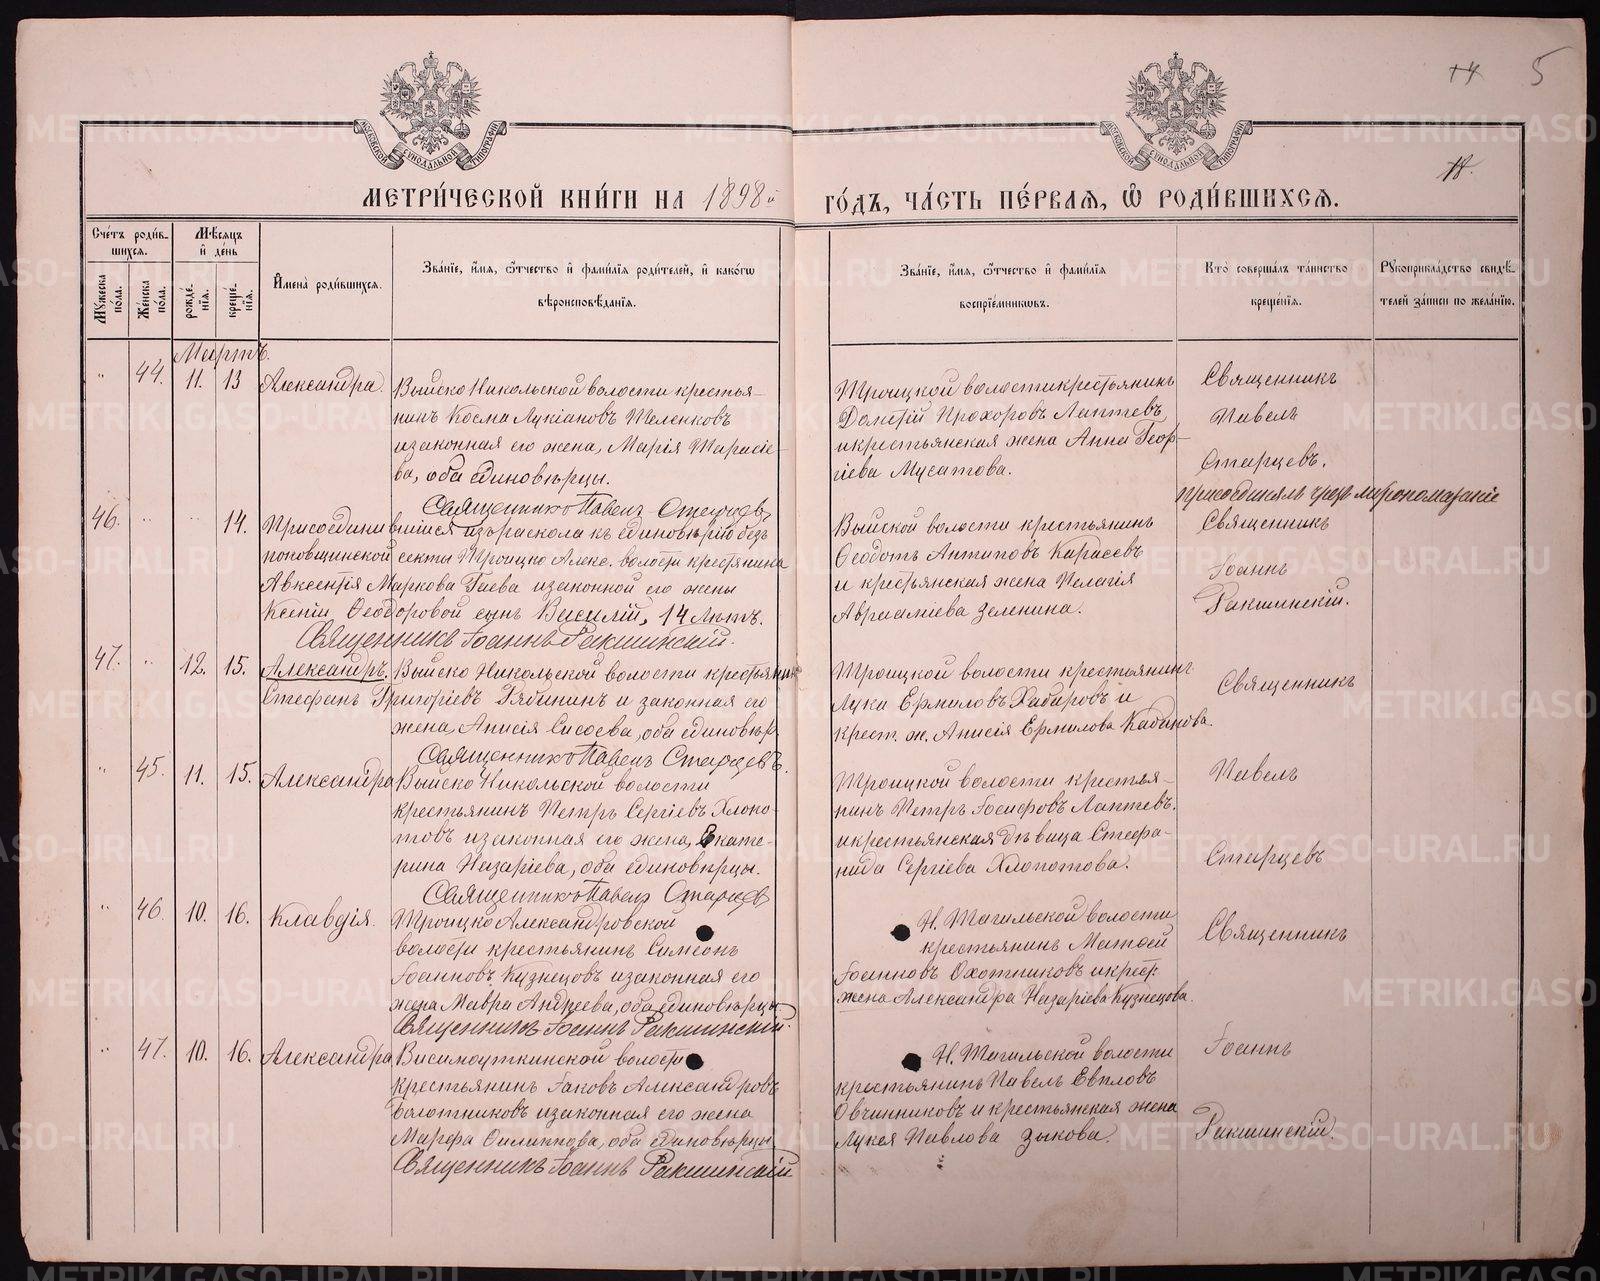 14 5
18.
МЕТРИ́ЧЕСКОЙ КНИ́ГИ НА 1898й ГО́ДЪ, ЧА́СТЬ ПЕ́РВАѦ, Ѽ РОДИ́ВШИХСѦ.
Сче́тъ роди́вшихся.
Мѣ́сяцъ и҆ де́нь
Мꙋ́жеска по́ла.
Же́нска по́ла.
рожде́нїя.
креще́нїя.
И҆мена̀ роди́вшихся.
Зва́нїе, и҆́мя, ѻ҆́тчество и҆ фами́лїя роди́телей, и҆ како́гѡ вѣроисповѣ́данїя.
Зва́нїе, и҆́мя, ѻ҆́тчество и҆ фами́лїя воспрїе́мникѡвъ.
Кто̀ соверша́лъ та́инство креще́нїя.
Рꙋкоприкла́дство свидѣ́телей за́писи по жела́нїю.
Мартъ.
" 44. 11. 13 Александра.
Выйско Никольской волости крестья-
нинъ Косма Лукіановъ Шеленковъ
и законная его жена, Марія Тарасіе-
ва, оба единовѣрцы.
Священникъ Павелъ Старцевъ
Троицкой волости крестьянинъ
Прохоровъ Лаптевъ,
и крестьянская жена Анна Геор-
гіева Мусатова.
Священникъ
Павелъ
Старцевъ.
46. " " 14. Присоединившійся изъ раскола къ единовѣрію без
поповщинской секты Троицко Алекс. волости крестьянина
Авксентія Маркова Гаева и законной его жены
Ксеніи Ѳеодоровой сынъ Василій, 14 лѣтъ.
Священникъ Іоаннъ Ракшинскій.
Выйской волости крестьянинъ
Ѳеодотъ Антиповъ Карасевъ
и крестьянская жена Пелагія
Аврааміева Зеленина.
присоединялъ чрезъ мѵропомазаніе
Священникъ
Іоаннъ
Ракшинскій.
47. " 12. 15. Александръ.
Выйско Никольской волости крестьянинъ
Стефанъ Григоріевъ Рябининъ и законная его
жена Анисія Сисоева, оба единовѣр.
Священникъ Павелъ Старцевъ.
Троицкой волости крестьянинъ
Лука Ермиловъ Хабаровъ и
крест. ж. Анисія Ермилова Кабанова.
Священникъ
" 45. 11. 15. Александра
Выйско Никольской волости
крестьянинъ Петръ Сергіевъ Хлопо-
товъ и законная его жена, Екате-
рина Назаріева, оба единовѣрцы.
Священникъ Павелъ Старцевъ
Троицкой волости крестья-
нинъ Петръ Іосифовъ Лаптевъ.
и крестьянская дѣвица Стефа-
нида Сергіева Хлопотова.
Павелъ
Старцевъ
" 46. 10. 16. Клавдія.
Троицко Александровской
волости крестьянинъ Симеонъ
Іоанновъ Кузнецовъ и законная его
жена Мавра Андреева, оба единовѣрцы
Священникъ Іоаннъ Ракшинскій.
Н. Тагильской волости
крестьянинъ Матѳей
Іоанновъ Охотниковъ и крест.
жена Александра Назаріева Кузнецова.
Священникъ
" 47. 10. 16. Александра
Висимоуткинской волости
крестьянинъ Іаковъ Александровъ
Болотниковъ и законная его жена
Марѳа Филиппова, оба единовѣрцы
Священникъ Іоаннъ Ракшинскій
Н. Тагильской волости
крестьянинъ Павелъ Евпловъ
Овчинниковъ и крестьянская жена
Лукея Павлова Зыкова.
Іоаннъ
Ракшинскій
METRIKI.GASO-URAL.RU